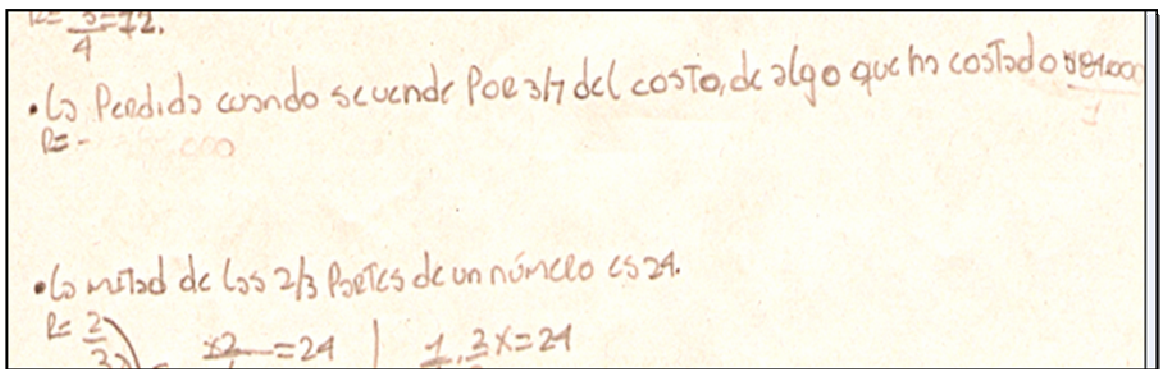 R= 3/4=12.
• La Perdida cuando se vende Por 3/7 del costo, de algo que ha costado $84.000
R= -
• La mitad de las 2/3 Partes de un número es 24.
R= 2/3 = 24 | 1 . 2 x=24